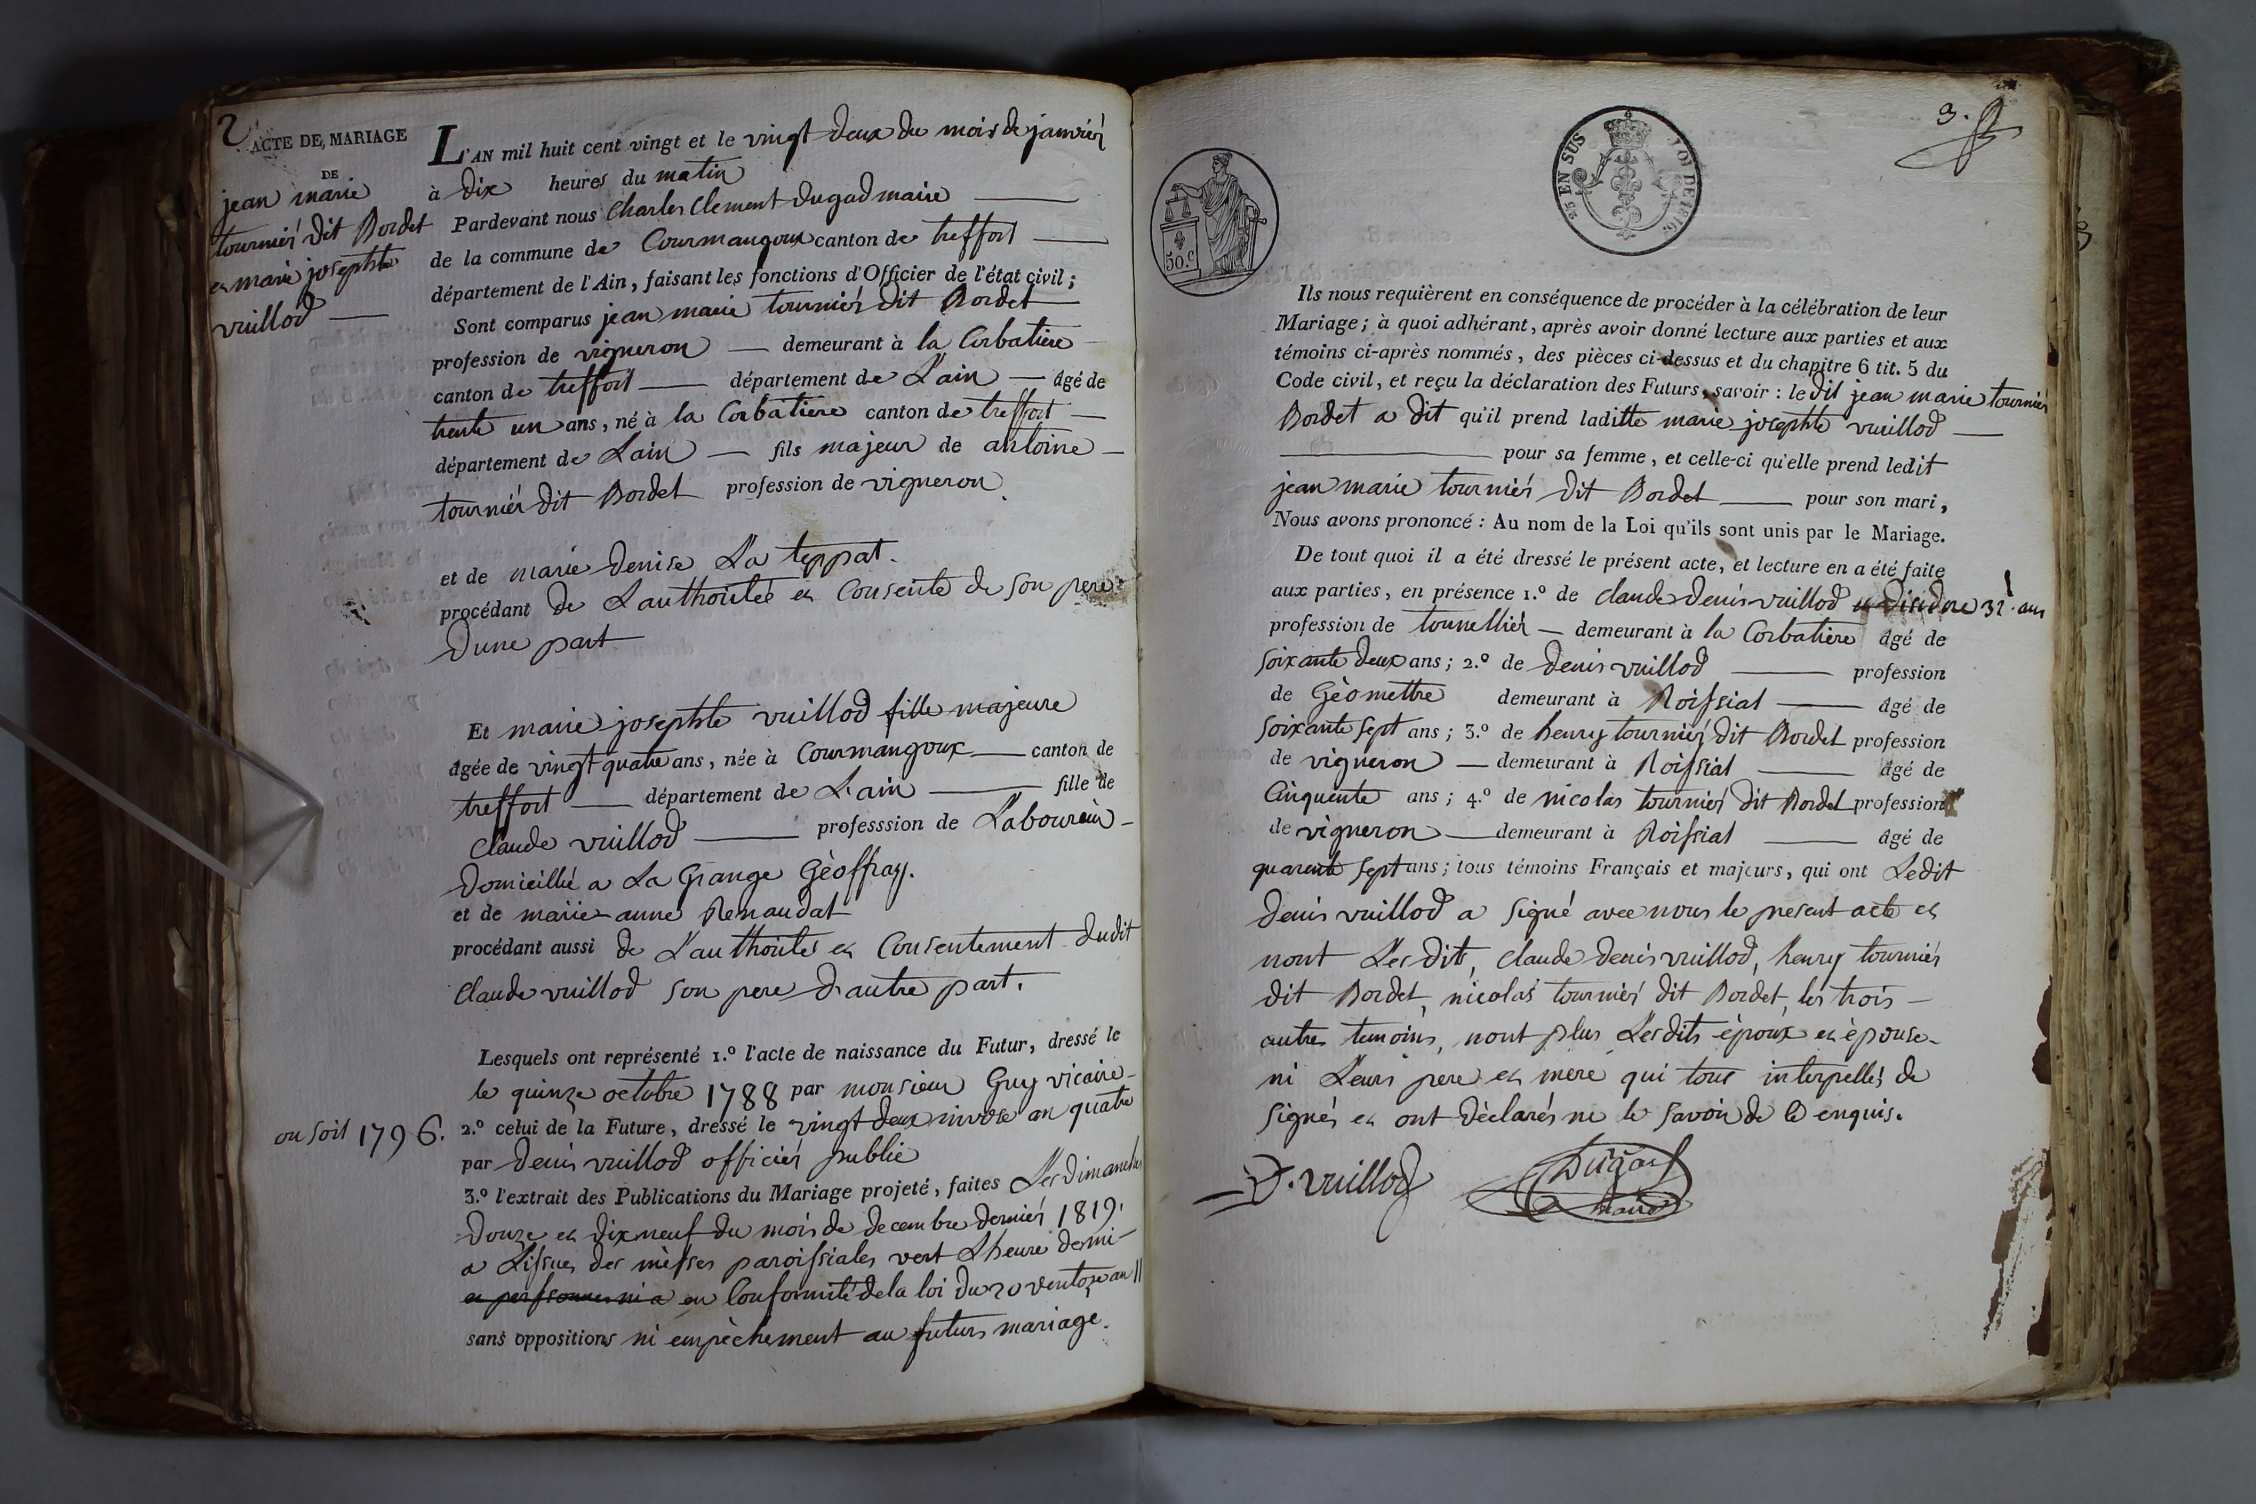 2
ACTE DE MARIAGE
DE
jean marie
tournier dit Bordet
et marie josephte
vuillod
L'AN mil huit cent vingt et le vingt deux du mois de janvier
à dix heures du matin
Pardevant nous Charles Clement Dugad maire
de la commune de Courmangoux canton de treffort
département de l'Ain, faisant les fonctions d'Officier de l'état civil;
Sont comparus jean marie tournier dit Bordet
profession de vigneron demeurant à la Corbatiere
canton de treffort département de L'ain âgé de
trente un ans, né à la Corbatiere canton de treffort
département de Lain fils majeur de antoine
tournier dit Bordet profession de vigneron
et de marie denise La teppat.
procédant de L'authoritée et Consente de son pere
Dune part
Et marie josephte vuillod fille majeure
âgée de vingt quatre ans, née à Courmangoux canton de
treffort département de L'ain fille de
claude vuillod professsion de Laboureur
Domicillié a La Grange Gèoffray.
et de marie anne Renaudat
procédant aussi de L'authorite et Consentement dudit
claude vuillod son pere D'autre part.
Lesquels ont représenté 1.º l'acte de naissance du Futur, dressé le
le quinze octobre 1788 par monsieur Guy vicaire
2.º celui de la Future, dressé le vingt deux nivose an quatre
ou soit 1796.
par denis vuillod officier public
3.º l'extrait des Publications du Mariage projeté, faites Les Dimanches
Douze et dix neuf du mois de decembre dernier 1819.
a Lissue des mèsses paroissiales vert L'heure demi
en Conformité de la loi du 20 ventose an 11
sans oppositions ni empèchement au futurs mariage.
3.
25 EN SUS
LOI DE 1816
50.C
Ils nous requièrent en conséquence de procéder à la célébration de leur
Mariage; à quoi adhérant, après avoir donné lecture aux parties et aux
témoins ci-après nommés, des pièces ci-dessus et du chapitre 6 tit. 5 du
Code civil, et reçu la déclaration des Futurs, savoir: le dit jean marie tournier
Bordet a dit qu'il prend laditte marie josephte vuillod
pour sa femme, et celle-ci qu'elle prend ledit
jean marie tournier dit Bordet pour son mari,
Nous avons prononcé: Au nom de la Loi qu'ils sont unis par le Mariage.
De tout quoi il a été dressé le présent acte, et lecture en a été faite
aux parties, en présence 1.º de claude denis vuillod ans
profession de tonnellier demeurant à la Corbatiere âgé de
soixante deux ans; 2.º de denis vuillod profession
de Gèomettre demeurant à Roissiat âgé de
soixante sept ans; 3.º de henry tournier dit Bordet profession
de vigneron demeurant à Roissiat âgé de
Cinquente ans; 4.º de nicolas tournier dit Bordet profession
de vigneron demeurant à Roissiat âgé de
quarente sept ans; tous témoins Français et majeurs, qui ont Ledit
denis vuillod a signé avec nous le present acte et
nont Les dits, claude denis vuillod, henry tournier
dit Bordet, nicolas tournier dit Bordet, les trois
autres temoins, nont plus Lesdits époux et épouse
ni Leurs pere et mere qui tous interpellés de
signés et ont dèclarés ne le savoir de ce enquis.
D. vuillod
Dugad
maire